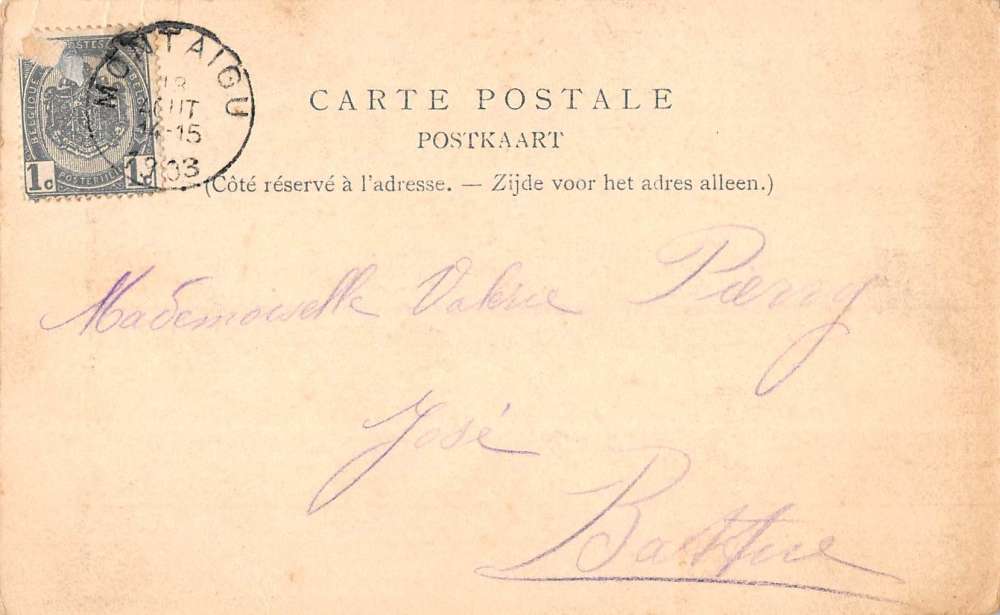 POSTES
BELGIQUE
BELGIE
POSTERIJEN
1c 1c
MONTAIGU
18
AOUT
14-15
1903
CARTE POSTALE
POSTKAART
(Côté réservé à l'adresse. — Zijde voor het adres alleen.)
Mademoiselle Valérie
José
Battice